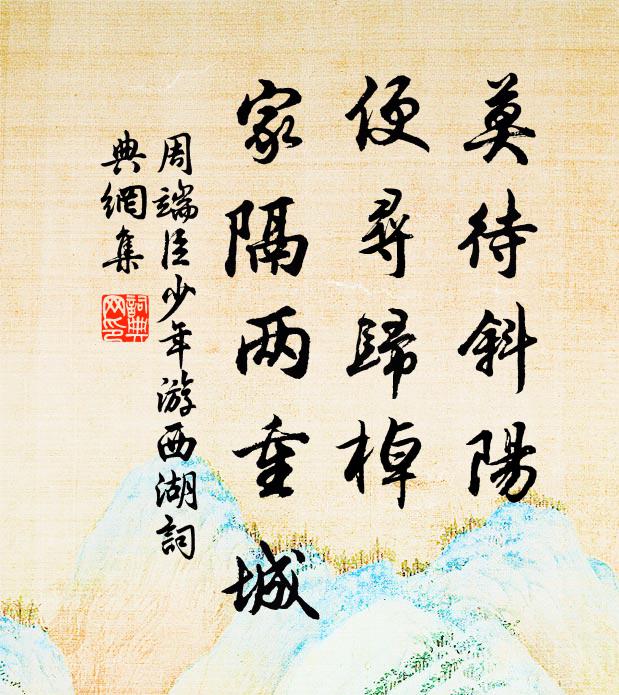 莫待斜陽
便尋歸棹
家隔两重城
周端臣少年游西湖詞
典網集
詞典
网印